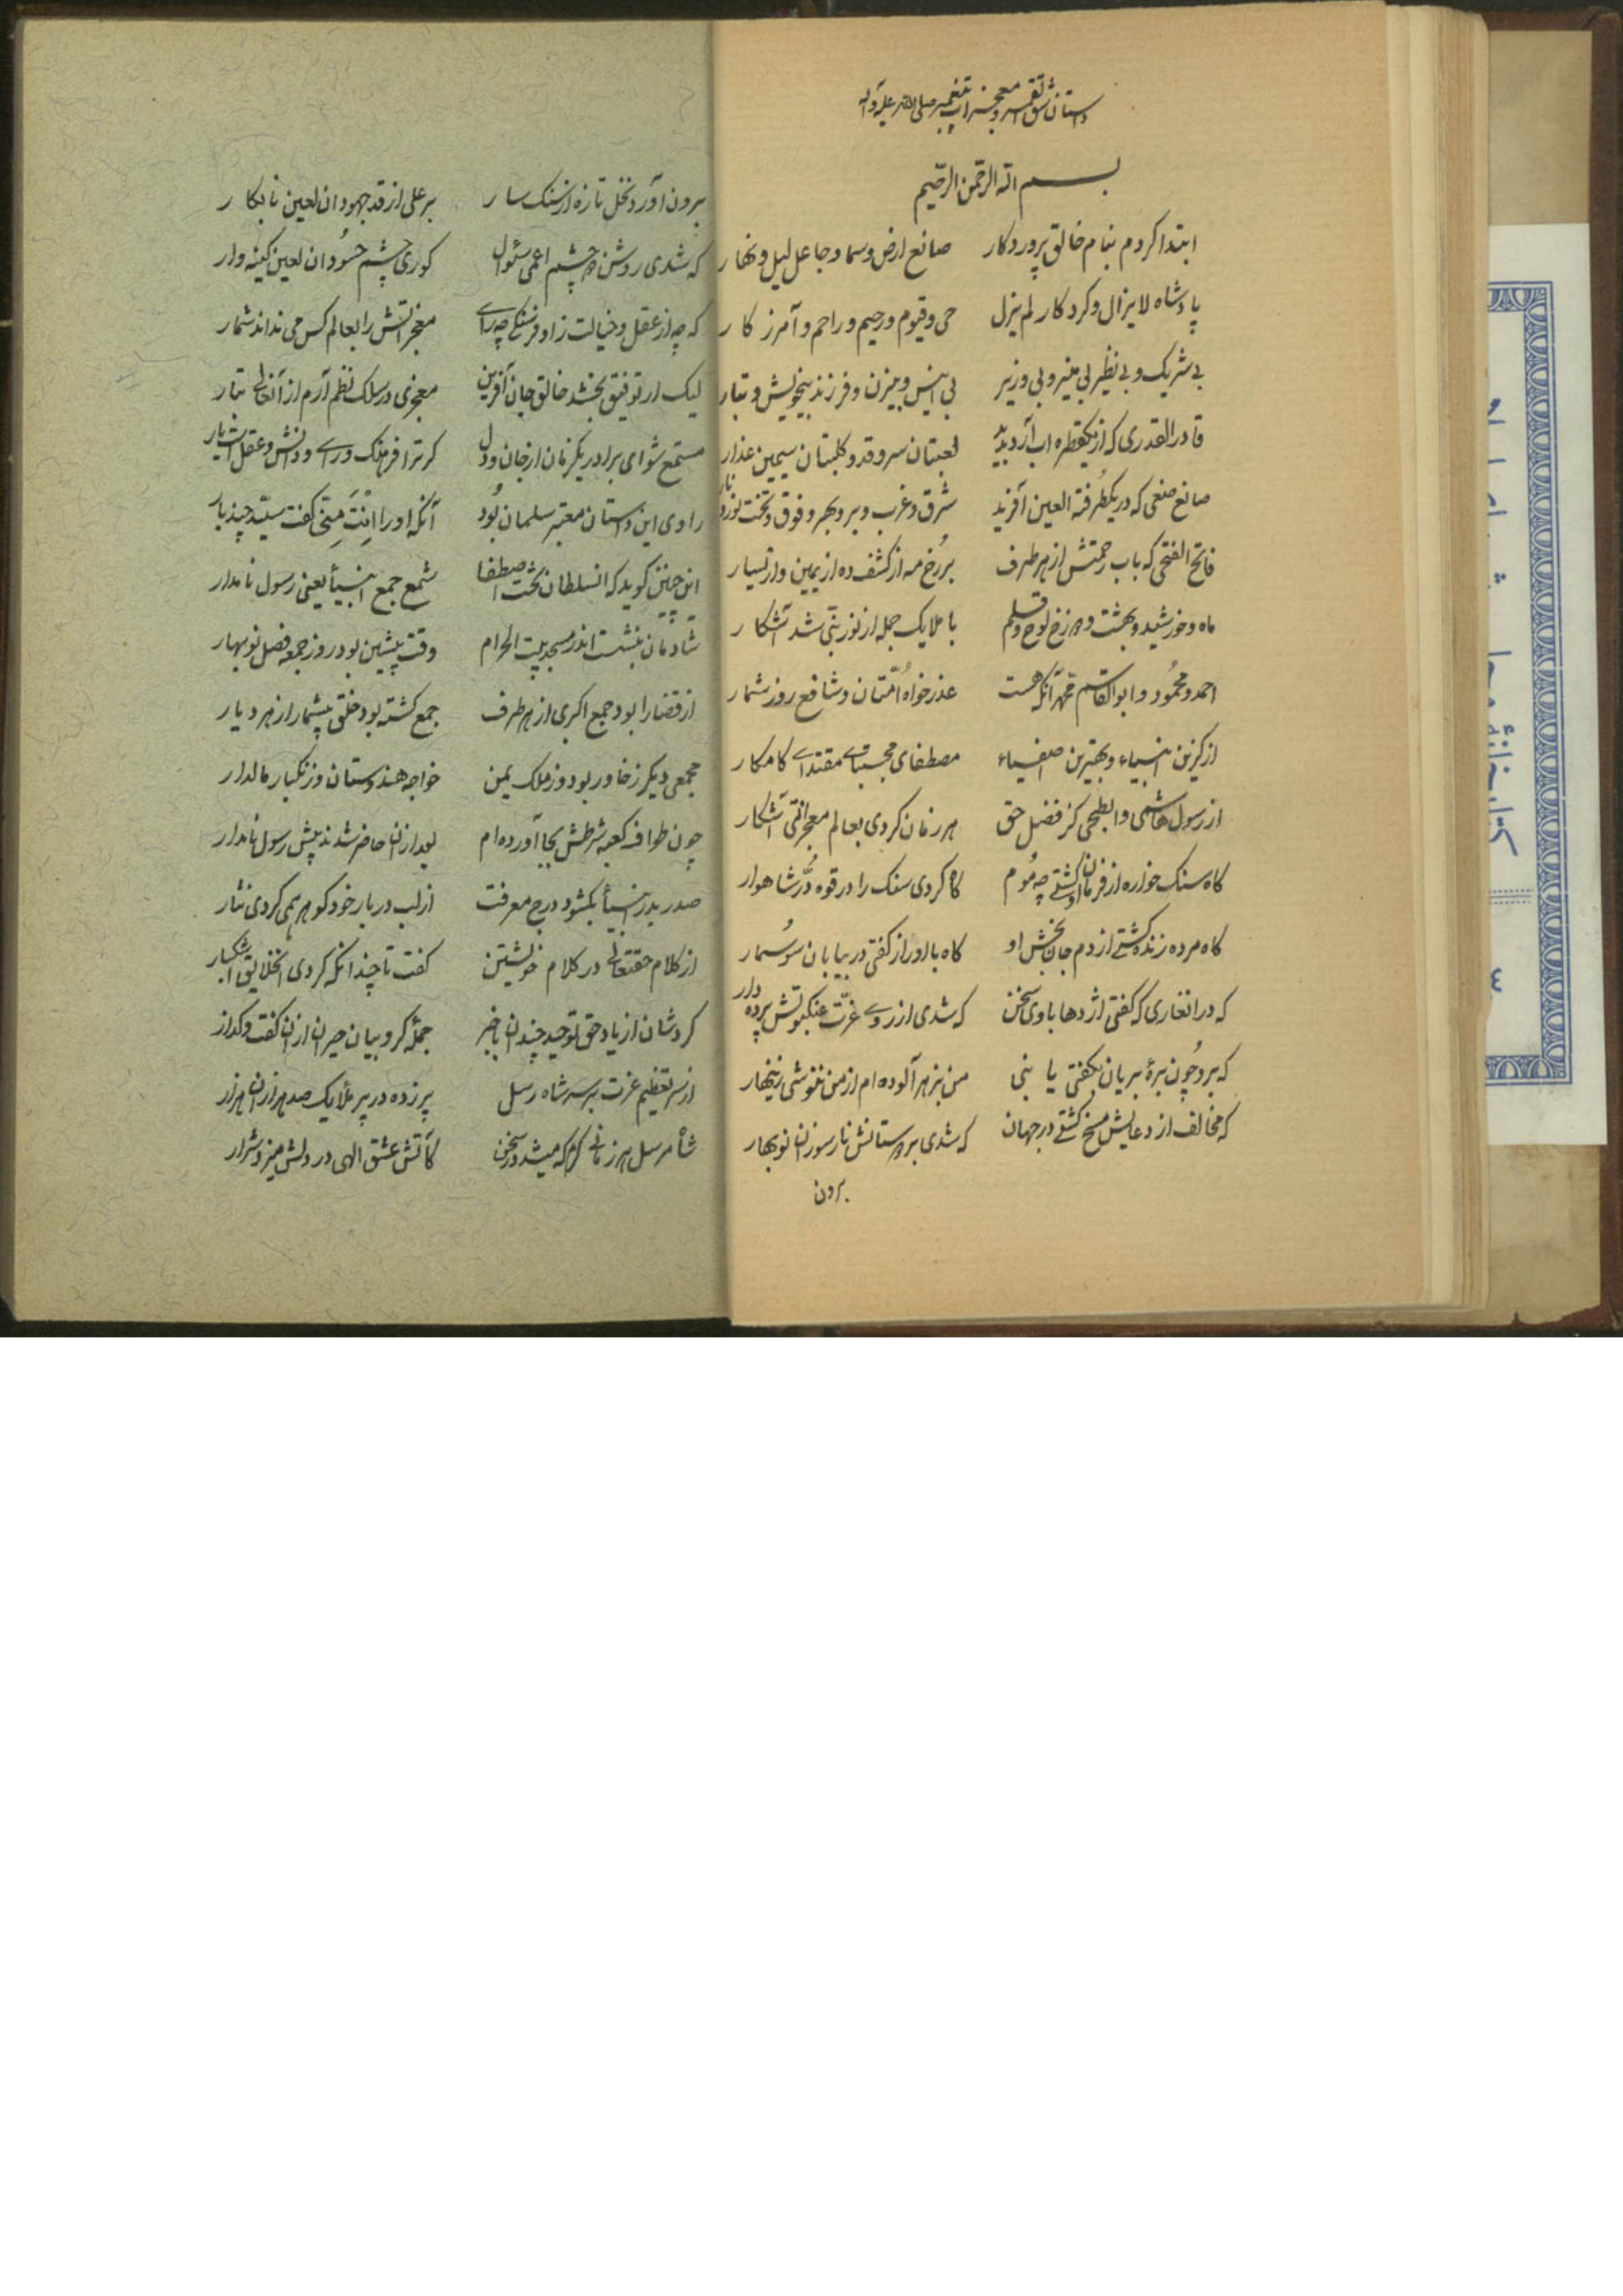 داستان شق القمر و معجزات پیغمبر صلی الله علیه و آله
بسم الله الرحمن الرحیم
ابتدا کردم بنام خالق پروردکار صانع ارض و سما و جاعل لیل و نهار
پادشاه لایزال و کردکار لم یزل حی و قیوم و رحیم و راحم و آمرزکار
بی شریک و بی نظیر بی منیر و بی وزیر بی انیس و بیزن و فرزند بیخویش و تبار
قادر القدری که از یکقطره اب آرد پدید لعبتان سرو قد و کلبتان سیمین عذار
صانع صنعی که در یکطرفة العین آفرید شرق و غرب و بر و بحر و فوق و تحت نور و نار
فاتح الفتحی که باب رحمتش از هر طرف بر رخ مه از کشف ده از یمین و از یسار
ماه و خورشید و بهشت و دوزخ لوح و قلم با ملایک جمله از نور نبی شد آشکار
احمد و محمود و ابو القاسم محمد آنکه هست عذر خواه امتان و شافع روز شمار
از کزین انبیاء و بهترین اصفیاء مصطفای مجتبای مقتدای کامکار
از رسول هاشمی و ابطحی کز فضل حق هر زمان کردی بعالم معجزاتی آشکار
کاه سنک خواره از فرمان او کشتی چه موم کاه کردی سنک را در قوه در شاهوار
کاه مرده زنده کشتی از دم جان بخش او کاه با او راز کفتی در بیابان سوسمار
که در انغاری که کفتی اژدها با وی سخن که شدی از روی عزت عنکبوتش پرده دار
که بر و چون بره بریان بکفتی یا نبی من بزهر آلوده ام از من ننوشی زینهار
که مخالف از دعایش مسخ کشتی در جهان که شدی بر دوستانش نار سوزان نوبهار
برون
برون آورد نخل تازه از سنک سار بر علی از قد جهودان لعین نابکار
که شدی روشن دو چشم اعمی سئول کوری چشم حسودان لعین کینه وار
که چه از عقل و خیالت زاد و فرسنکی چه رای معجزاتش را بعالم کس می نداند شمار
لیک ار توفیق بخشد خالق جان آفرین معجزی در سلک نظم آرم از آنعالی تبار
مستمع شو ای برادر یکزمان از جان و دل کر ترا فرهنک و رای و دانش و عقل است یار
راوی این داستان معتبر سلمان بود آنکه او را انت منی کفت سید چند بار
این چنین کوید که انسلطان تخت اصطفا شمع جمع انبیأ یعنی رسول نامدار
شادمان بنشست اندر مسجد بیت الحرام وقت پیشین بود روز جمعه فصل نوبهار
از قضا را بود جمع اکبری از هر طرف جمع کشته بود خلق بیشمار از هر دیار
مجمعی دیکر ز خاور بود وز ملک یمن خواجه هندوستان و زنکبار مالدار
چون طواف کعبه شرطش بجا آورده ام بعد از ان حاضر شدند پیش رسول نامدار
صدر بدر انبیأ بکشود درج معرفت از لب دربار خود کوهر همی کردی نثار
از کلام حقتعالی در کلام خویشتن کفت تا چندانکه کردی انخلایق اشکبار
کردشان از یاد حق توحید چندان باخبر جمله کروبیان حیران از ان کفت و کداز
از سر تعظیم عزت بر سر شاه رسل پر زده در پر ملأیک صد هزاران هزار
شاه مرسل هر زمانی کرم که میشد در سخن کآتش عشق الهی در دلش میزد شرار